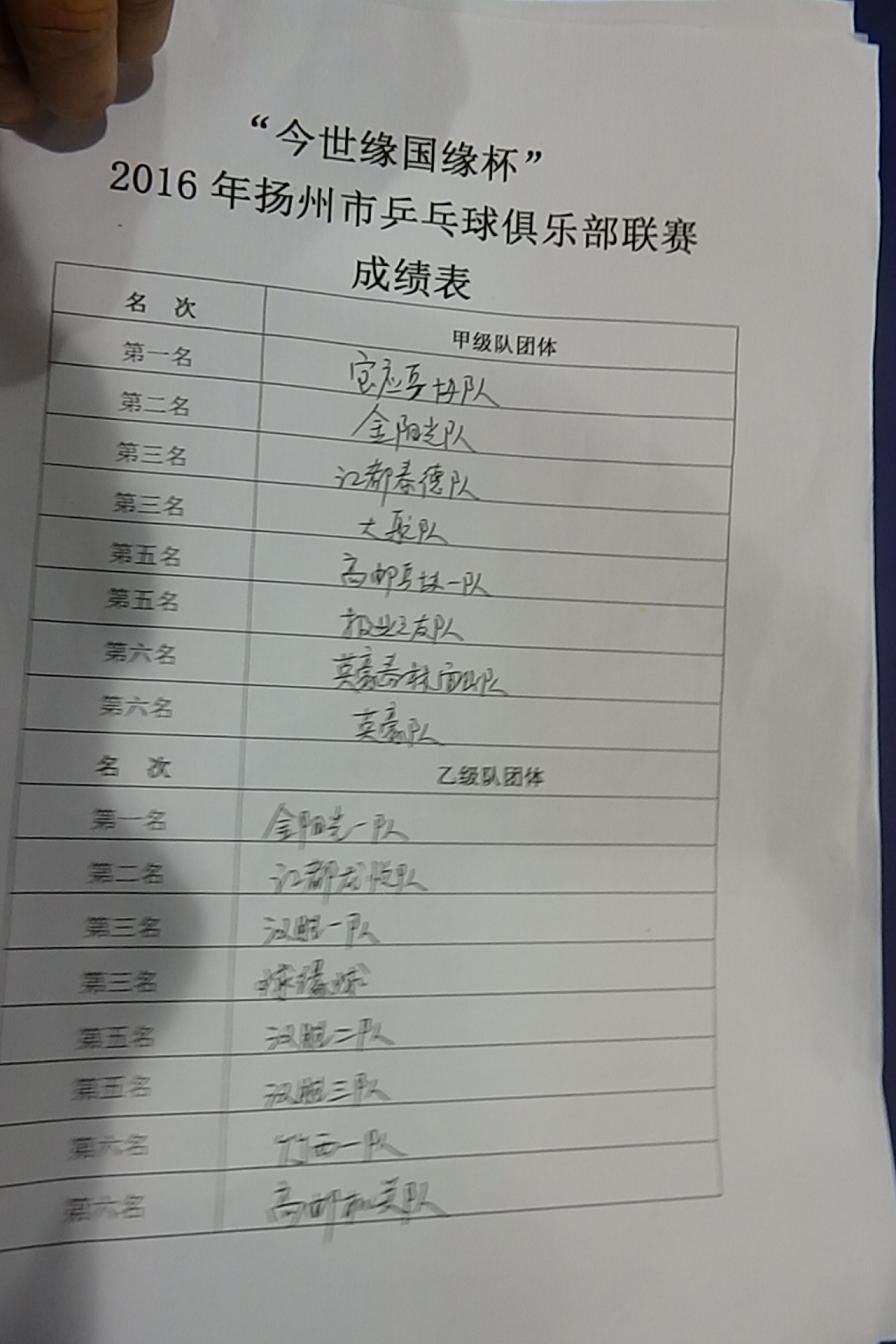 “今世缘国缘杯”
2016 年扬州市乒乓球俱乐部联赛
成绩表
名 次 甲级队团体
第一名 宝应乒协队
第二名 金阳光队
第三名 江都泰德队
第三名 大航队
第五名 高邮乒协一队
第五名 报业之友队
第六名 英豪 队
第六名 英豪队
名 次 乙级队团体
第一名 金阳光一队
第二名 江都 队
第三名 汉胞一队
第三名
第五名 汉胞二队
第五名 汉胞三队
第六名 竹西一队
第六名 高邮 队